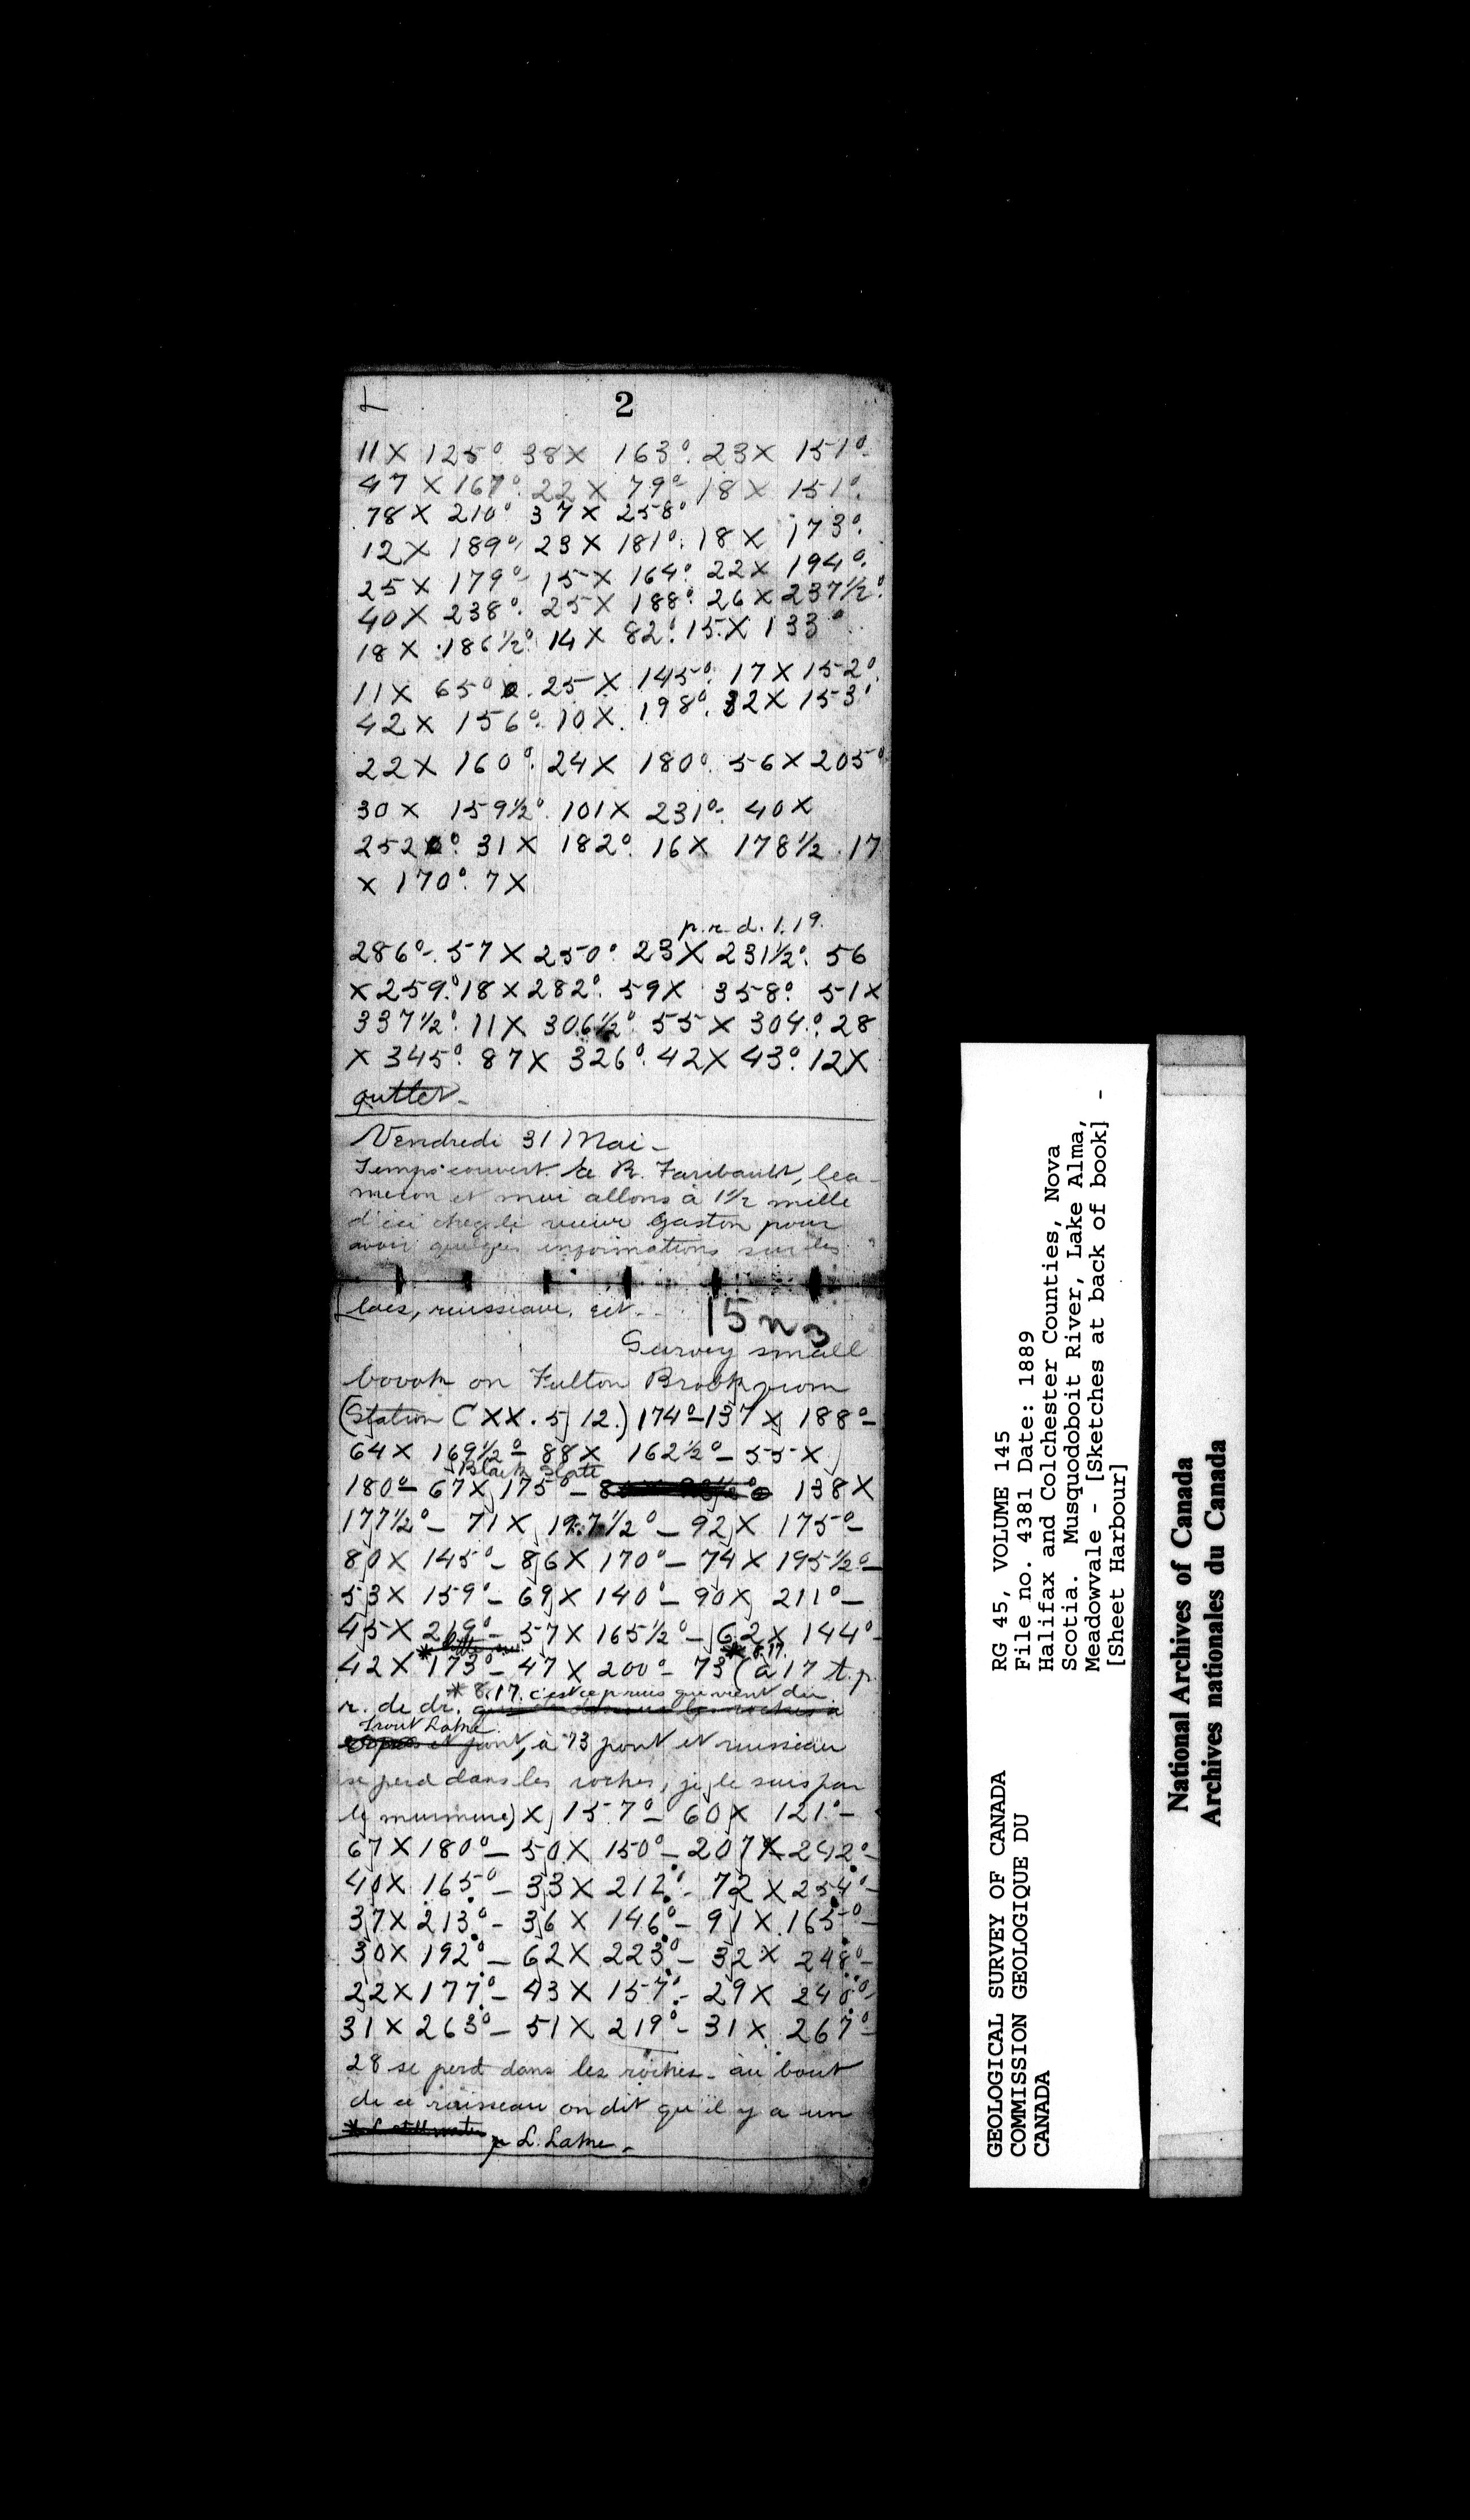 2
11 X 125°. 38 X 163°. 23 X 151°-
47 X 167°. 22 X 79°- 18 X 151°.
78 X 210°. 37 X 258°
12 X 189°. 23 X 181°. 18 X 173°.
25 X 179°- 15 X 164°. 22 X 194°.
40 X 238°. 25 X 188°. 26 X 237½°.
18 X 186½°. 14 X 82°. 15 X 133°.
11 X 65°. 25 X 145°. 17 X 152°.
42 X 156°. 10 X 198°. 32 X 153°
22 X 160°. 24 X 180°. 56 X 205°
30 X 159½°. 101 X 231°- 40 X
252°. 31 X 182°. 16 X 178½. 17
X 170°. 7 X
p. r. d. 1.19.
286°-. 57 X 250°. 23 X 231½°. 56
X 259°. 18 X 282°. 59 X 358°. 51 X
337½°. 11 X 306½° 55 X 304°. 28
X 345°. 87 X 326°. 42 X 43°. 12 X
outlet-
Vendredi 31 Mai-
Temps couvert. R. Faribault,
et moi allons à 1½ mille
d'ici chez le vieux Gaston pour
avoir quelques informations sur les
lacs, ruisseaux, ect-
15 n 3
Survey small
boook on Fulton Brook from
(Station C XX. 5, 12.) 174°-137 X 188°-
64 X 169½°- 88 X 162½°- 55 X
Black Slate
180°- 67 X 175°- 138 X
177½°- 71 X 197½°- 92 X 175°-
80 X 145°- 86 X 170°- 74 X 195½°-
53 X 159°- 69 X 140°- 90 X 211°-
45 X 269°- 57 X 165½°- 62 X 144°-
* 8.17.
42 X 173°- 47 X 200°- 73 (à 17 t. p.
* 8.17. c'est ce p ruis. qui vient du
r. de dr.
Trout Lake.
et pont, à 73 pont et ruisseau
se perd dans les roches, je le suis par
le murmure) X 157°- 60 X 121°-
67 X 180°- 50 X 150°- 207 X 242°-
40 X 165°- 33 X 212°- 72 X 254°-
37 X 213°- 36 X 146°- 91 X 165°-
30 X 192°- 62 X 223°- 32 X 248°-
22 X 177°- 43 X 157°- 29 X 240°-
31 X 263°- 51 X 219°- 31 X 267°-
28 se perd dans les roches- au bout
de ce ruisseau on dit qu'il y a un
p L. Lake.-
GEOLOGICAL SURVEY OF CANADA
COMMISSION GEOLOGIQUE DU
CANADA
RG 45, VOLUME 145
File no. 4381 Date: 1889
Halifax and Colchester Counties, Nova
Scotia. Musquodoboit River, Lake Alma,
Meadowvale - [Sketches at back of book] -
[Sheet Harbour]
National Archives of Canada
Archives nationales du Canada